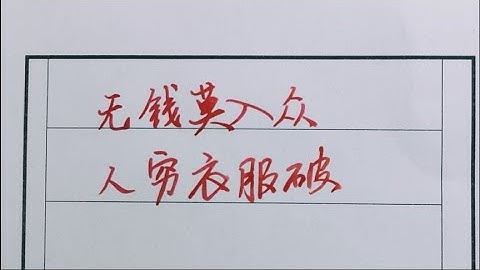 无钱莫入众
人穷衣服破